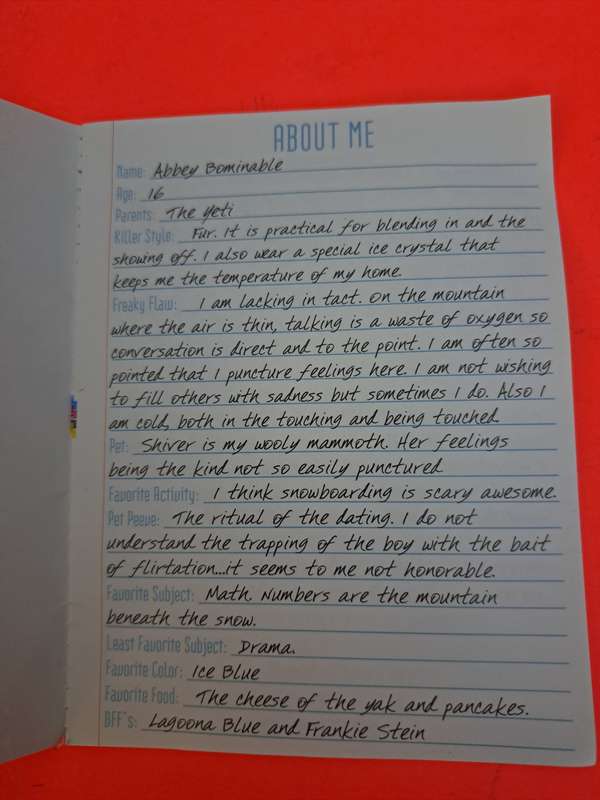 ABOUT ME
Name: Abbey Bominable
Age: 16
Parents: The Yeti
Killer Style: Fur. It is practical for blending in and the
showing off. I also wear a special ice crystal that
keeps me the temperature of my home.
Freaky Flaw: I am lacking in tact. On the mountain
where the air is thin, talking is a waste of oxygen so
conversation is direct and to the point. I am often so
pointed that I puncture feelings here. I am not wishing
to fill others with sadness but sometimes I do. Also I
am cold, both in the touching and being touched.
Pet: Shiver is my wooly mammoth. Her feelings
being the kind not so easily punctured.
Favorite Activity: I think snowboarding is scary awesome.
Pet Peeve: The ritual of the dating. I do not
understand the trapping of the boy with the bait
of flirtation...it seems to me not honorable.
Favorite Subject: Math. Numbers are the mountain
beneath the snow.
Least Favorite Subject: Drama.
Favorite Color: Ice Blue
Favorite Food: The cheese of the yak and pancakes.
BFF's: Lagoona Blue and Frankie Stein